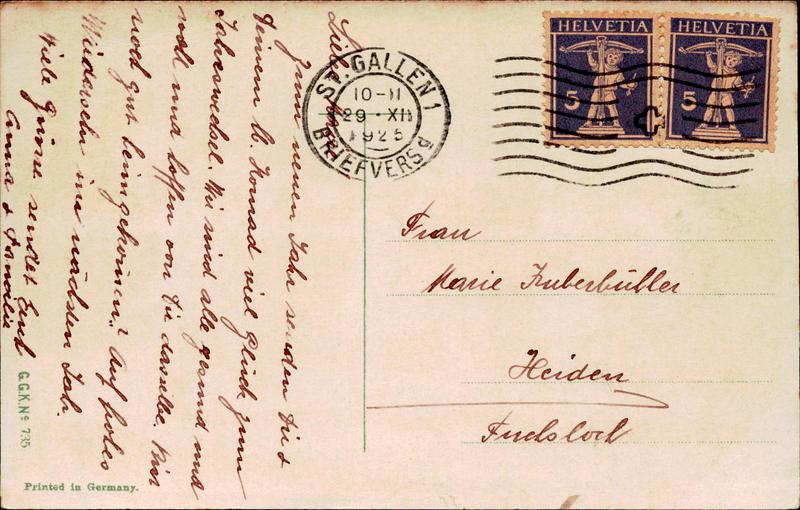 Liebe
Zum neuen Jahr senden Dir &
Deinem lb. Konrad viel Glück zum
Jahreswechsel. Wir sind alle gesund und
wohl und hoffen von Dir dasselbe. Bin
noch gut heimgekommen. Auf frohes
Wiedersehn im nächsten Jahr.
Viele Grüsse sendet Euch
Anna & Familie
G.G.K. Nº 735
Printed in Germany.
ST. GALLEN 1
10-11
29 · XII
1925
BRIEFVERSd
HELVETIA HELVETIA
5 5
Frau
Marie Zuberbühler
Heiden